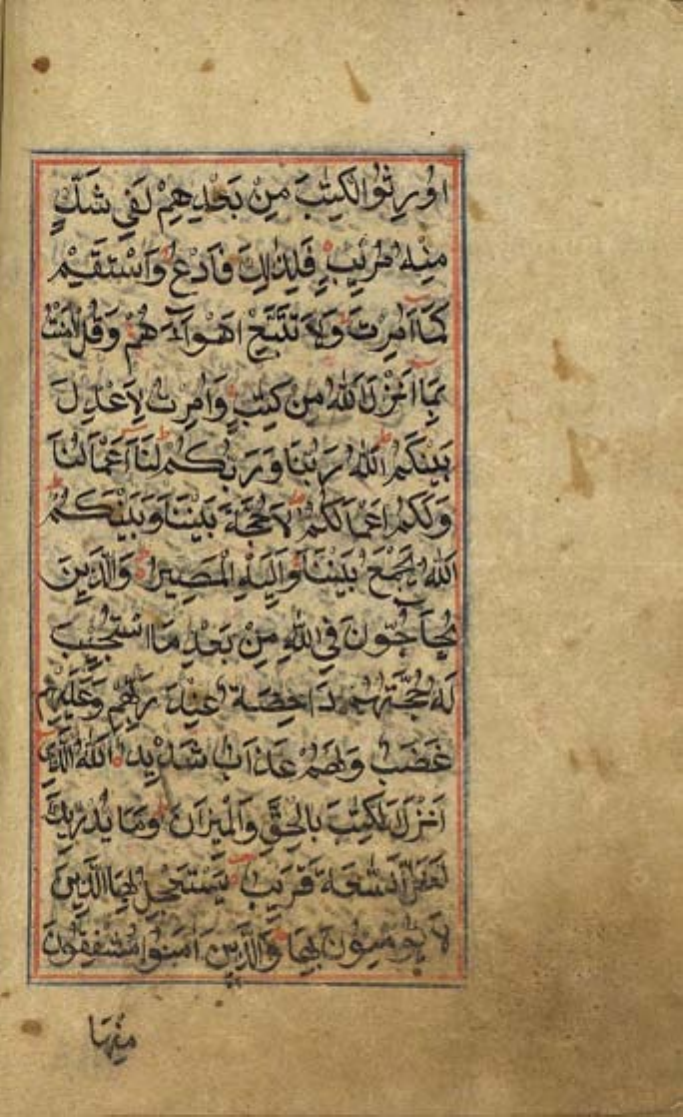 اُورِثُوا الْكِتٰبَ مِنْ بَعْدِهِمْ لَفِي شَكٍّ
مِنْهُ مُرِيْبٍ فَلِذٰلِكَ فَادْعُ وَاسْتَقِيْمْ
كَمَا اُمِرْتَ وَلَا تَتَّبِعْ اَهْوَآءَ هُمْ وَقُلْ اٰمَنْتُ
بِمَا اَنْزَلَ اللّٰهُ مِنْ كِتٰبٍ وَاُمِرْتُ لِاَعْدِلَ
بَيْنَكُمْ اَللّٰهُ رَبُّنَا وَرَبُّكُمْ لَنَا اَعْمَالُنَا
وَلَكُمْ اَعْمَالُكُمْ لَا حُجَّةَ بَيْنَنَا وَبَيْنَكُمْ
اَللّٰهُ يَجْمَعُ بَيْنَنَا وَاِلَيْهِ الْمَصِيْرُ وَالَّذِيْنَ
يُحَآجُّوْنَ فِي اللّٰهِ مِنْ بَعْدِ مَا اسْتُجِيْبَ
لَهُ حُجَّتُهُمْ دَاحِضَةٌ عِنْدَ رَبِّهِمْ وَعَلَيْهِمْ
غَضَبٌ وَلَهُمْ عَذَابٌ شَدِيْدٌ اَللّٰهُ الَّذِيْ
اَنْزَلَ الْكِتٰبَ بِالْحَقِّ وَالْمِيْزَانَ وَمَا يُدْرِيْكَ
لَعَلَّ السَّاعَةَ قَرِيْبٌ يَسْتَعْجِلُ بِهَا الَّذِيْنَ
لَا يُؤْمِنُوْنَ بِهَا وَالَّذِيْنَ اٰمَنُوْا مُشْفِقُوْنَ
مِنْهَا